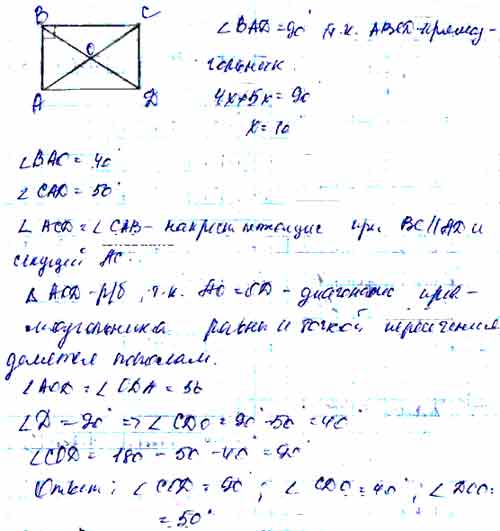 B C
O
A D
∠BAD = 90° т.к. ABCD - прямоу-
гольник.
4x+5x = 90
x = 10°
∠BAC = 40°
∠CAD = 50°
∠ACD = ∠CAB - накрест лежащие при BC || AD и
секущей AC.
Δ AOD - р/б, т.к. AO = OD - диагонали пря-
моугольника равны и точкой пересечения
делятся пополам.
∠AOD = ∠ODA = 50
∠D = 90° => ∠CDO = 90° - 50° = 40°
∠COD = 180 - 50 - 40° = 90°
Ответ: ∠COD = 90°; ∠CDO = 40°; ∠DCO =
= 50°